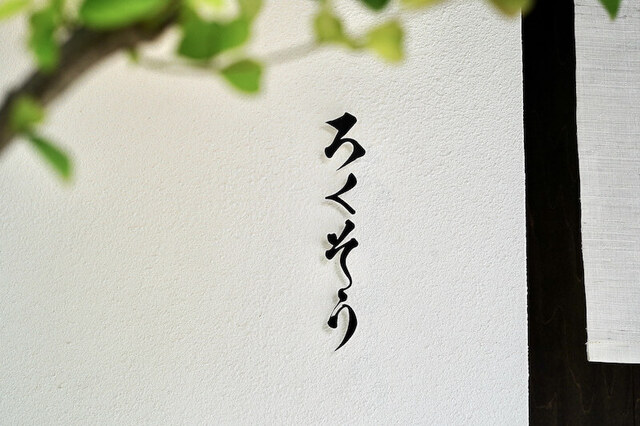 ろくそう